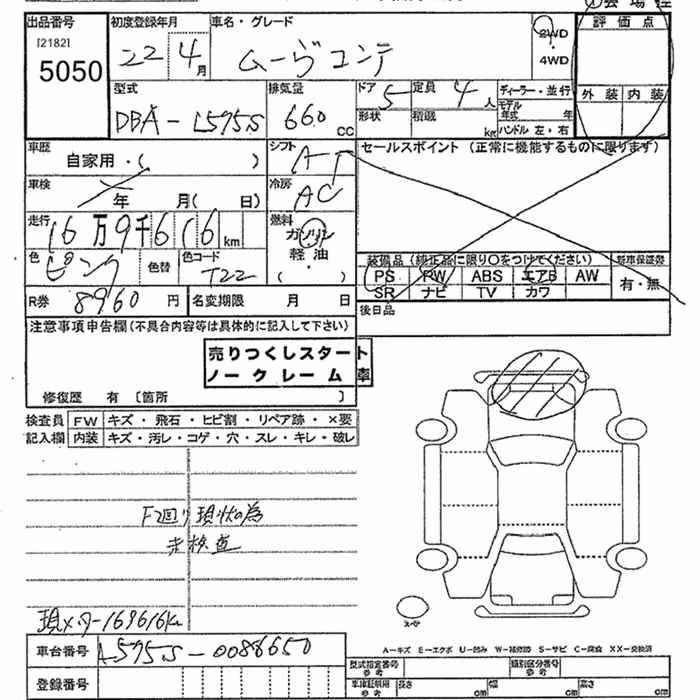 出品番号 初度登録年月 車名・グレード 評価点
[2182] 5050 22 4月 ムーヴコンテ 2WD
4WD
型式 排気量 ドア 定員 ディーラー・並行 外装 内装
DBA-L575S 660 CC 5 4人 モデル年式 年
形状 積載 kg ハンドル 左・右
車歴 シフト セールスポイント (正常に機能するものに限ります)
自家用・( ) AT
車検 冷房
年 月( 日) AC
走行 燃料
16万9千616km ガソリン
色 色替 色コード 軽油
ピンク T22 ( ・ )
装備品 (純正品に限り○をつけてください) 新車保証書
PS PW ABS エアB AW 有・無
SR ナビ TV カワ
R券 8960円 名変期限 月 日 後日品
注意事項申告欄(不具合内容等は具体的に記入して下さい)
売りつくしスタート
ノークレーム車
修復歴 有 [箇所 ]
検査員 FW キズ・飛石・ヒビ割・リペア跡・×要
記入欄 内装 キズ・汚レ・コゲ・穴・スレ・キレ・破レ
F廻り現状の為
未検査
現メーター169616km
スペア
A=キズ E=エクボ U=凹み W=補修跡 S=サビ C=腐食 XX=交換済
車台番号 L575S-0088650
登録番号
型式指定番号 参考 類別区分番号 参考
車庫証明用 参考 長さ cm 幅 cm 高さ cm